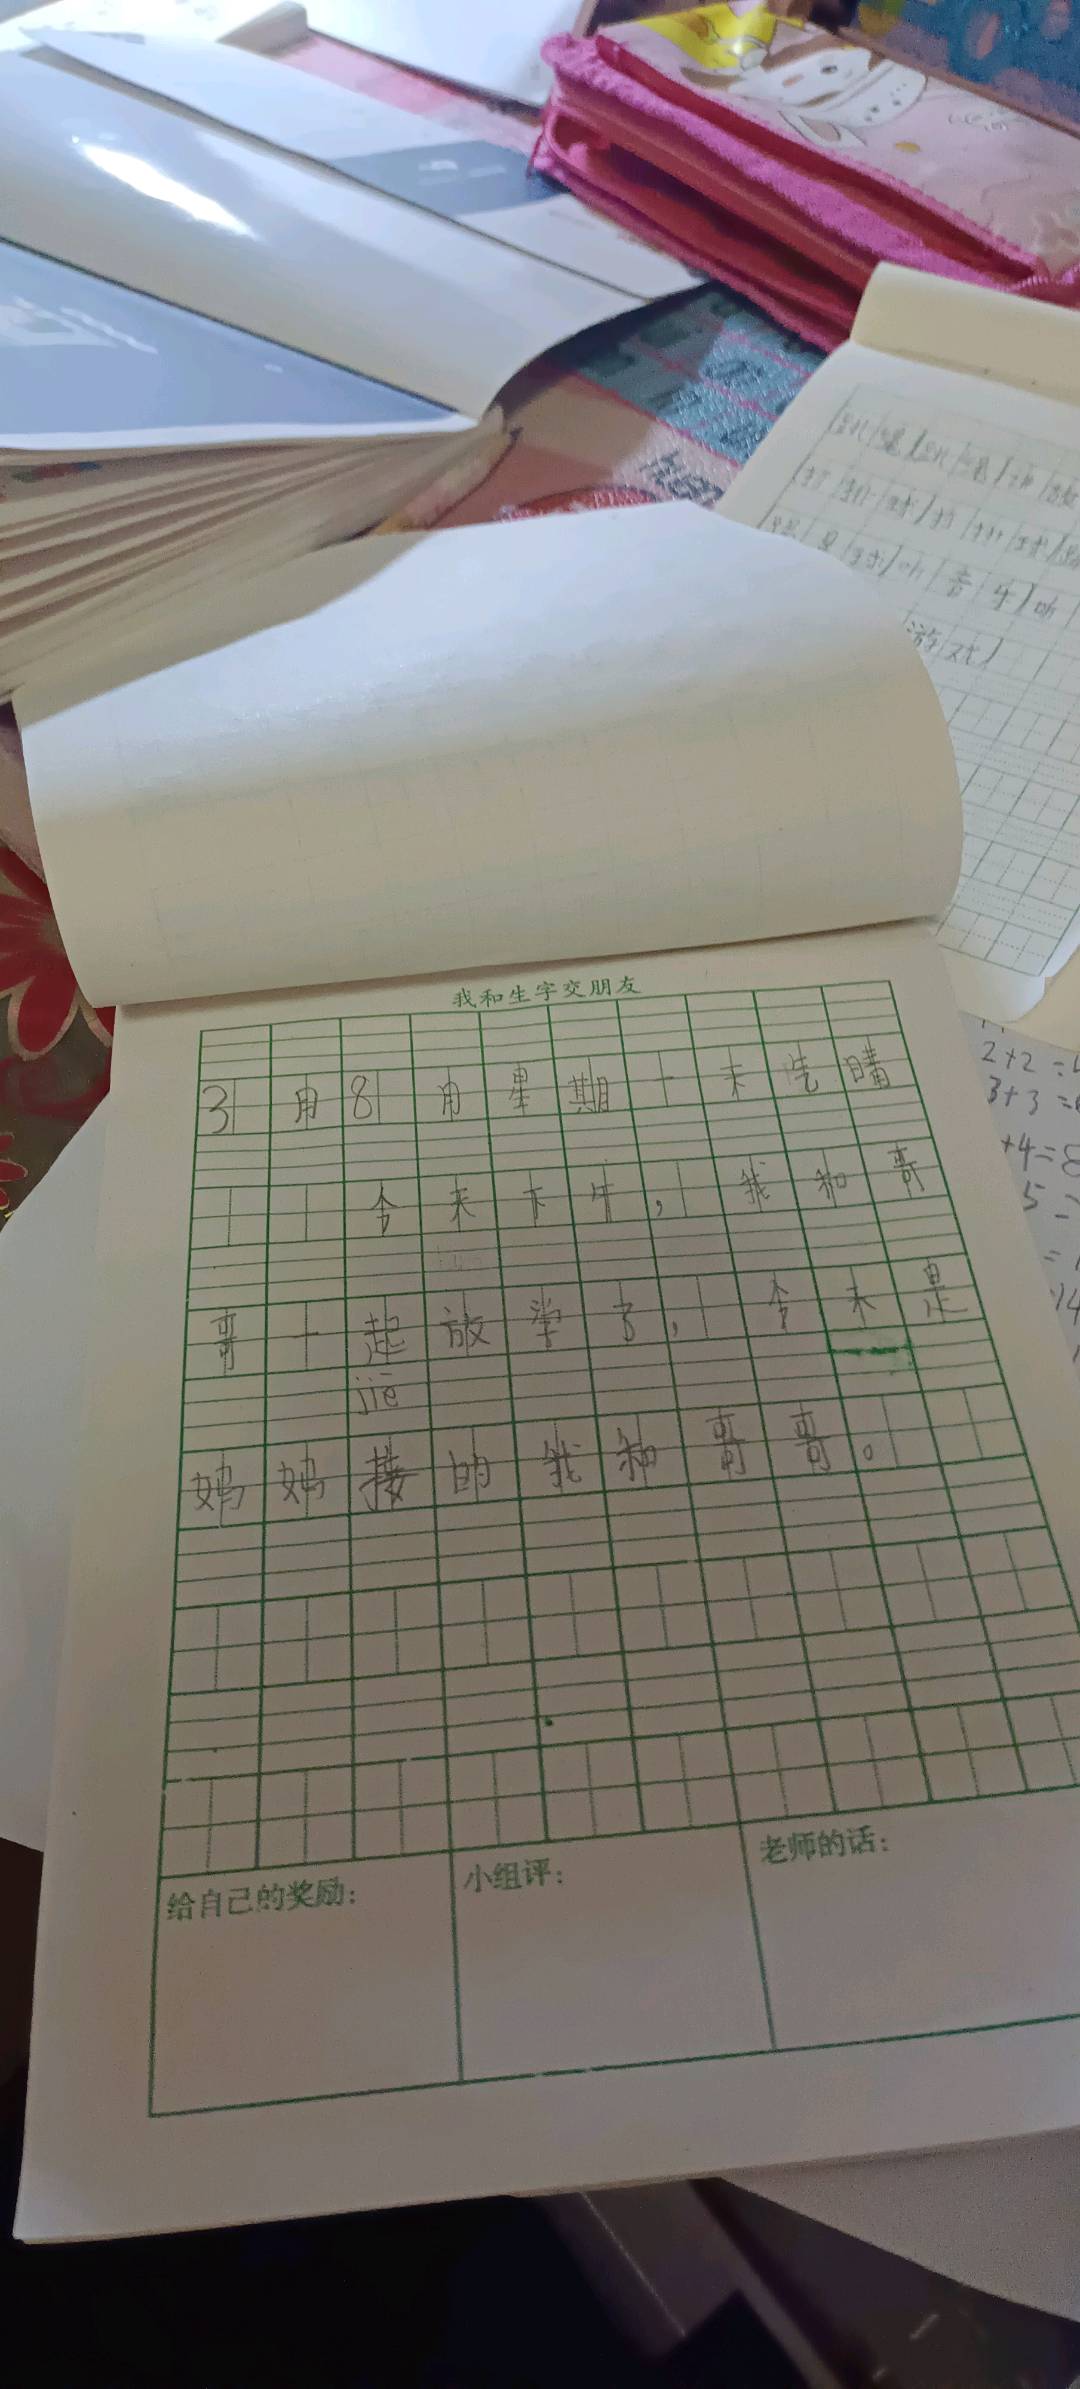 我和生字交朋友
3月8月星期一天气晴
今天下午，我和哥
哥一起放学了，今天是
jiē
妈妈接的我和哥哥。
给自己的奖励：
小组评：
老师的话：
音乐 听
游戏
2+2=
3+3=
+4=8